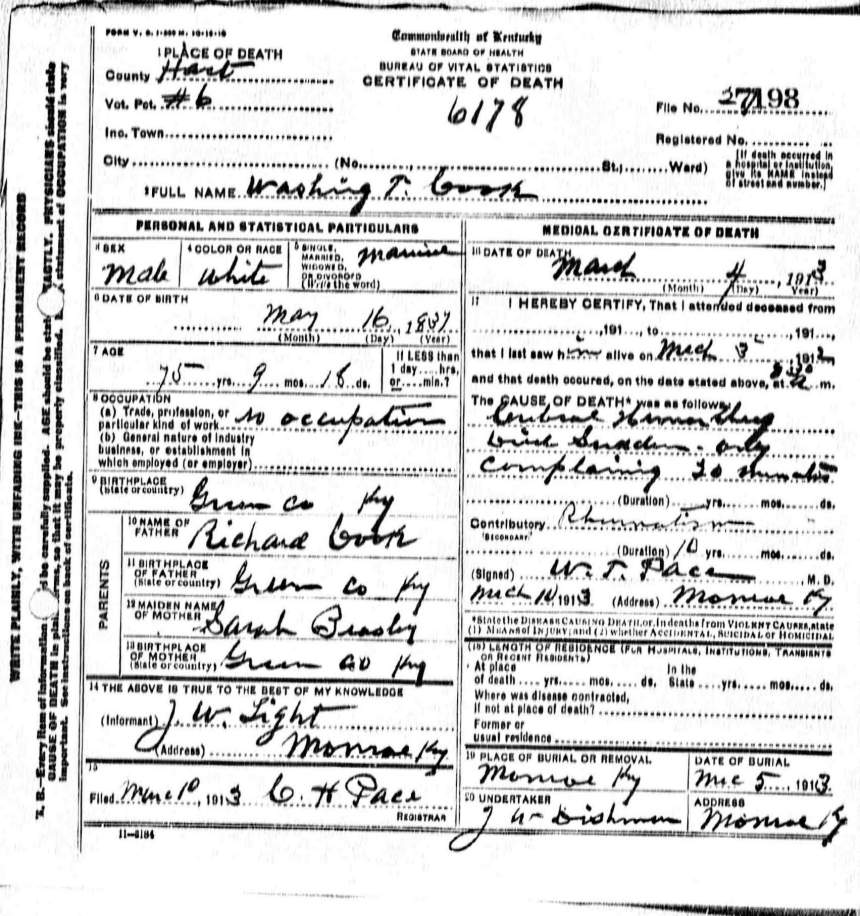 FORM V. S. 1-500 M. 10-10-10
Commonwealth of Kentucky
STATE BOARD OF HEALTH
BUREAU OF VITAL STATISTICS
CERTIFICATE OF DEATH
1 PLACE OF DEATH
County Hart
Vot. Pct. #6
Inc. Town
City (No. St.; Ward)
6178
File No. 27198
Registered No.
[If death occurred in a hospital or institution, give its NAME instead of street and number.]
2 FULL NAME Washing T. Cook
PERSONAL AND STATISTICAL PARTICULARS
3 SEX Male
4 COLOR OR RACE White
5 SINGLE, MARRIED, WIDOWED, OR DIVORCED (Write the word) Married
6 DATE OF BIRTH
May 16, 1837
(Month) (Day) (Year)
7 AGE
75 yrs. 9 mos. 18 ds.
If LESS than 1 day....hrs. or....min.?
8 OCCUPATION
(a) Trade, profession, or particular kind of work no occupation
(b) General nature of industry business, or establishment in which employed (or employer)
9 BIRTHPLACE (State or country) Green Co Ky
PARENTS
10 NAME OF FATHER Richard Cook
11 BIRTHPLACE OF FATHER (State or country) Green Co Ky
12 MAIDEN NAME OF MOTHER Sarah
13 BIRTHPLACE OF MOTHER (State or country) Green Co Ky
14 THE ABOVE IS TRUE TO THE BEST OF MY KNOWLEDGE
(Informant) J. W. Light
(Address) Monroe Ky
15
Filed Marc 10, 1913 C. H Pace
REGISTRAR
11-3184
MEDICAL CERTIFICATE OF DEATH
16 DATE OF DEATH
March 4, 1913
(Month) (Day) (Year)
17 I HEREBY CERTIFY, That I attended deceased from
,191 , to ,191 ,
that I last saw him alive on Mch 3 191
and that death occured, on the date stated above, at m.
The CAUSE OF DEATH* was as follows:
Died Sudden - only
Complaining 30 minutes
(Duration) yrs. mos. ds.
Contributory Rheumatism
(SECONDARY)
(Duration) 10 yrs. mos. ds.
(Signed) W. T. Pace M. D.
Mch 10, 1913 (Address) Monroe Ky
*State the DISEASE CAUSING DEATH, or, in deaths from VIOLENT CAUSES, state
(1) MEANS OF INJURY; and (2) whether ACCIDENTAL, SUICIDAL or HOMICIDAL
(18) LENGTH OF RESIDENCE (FOR HOSPITALS, INSTITUTIONS, TRANSIENTS OR RECENT RESIDENTS)
At place of death yrs. mos. ds. In the State yrs. mos. ds.
Where was disease contracted,
If not at place of death?
Former or
usual residence
19 PLACE OF BURIAL OR REMOVAL
Monroe Ky
DATE OF BURIAL
5, 1913.
20 UNDERTAKER
J W Dishman
ADDRESS
Monroe Ky
WRITE PLAINLY, WITH UNFADING INK—THIS IS A PERMANENT RECORD
B.—Every item of information be carefully supplied. AGE should be EXACTLY. PHYSICIANS should state
CAUSE OF DEATH in so that it may be properly classified. statement of OCCUPATION is very
important. See instructions on back of certificate.